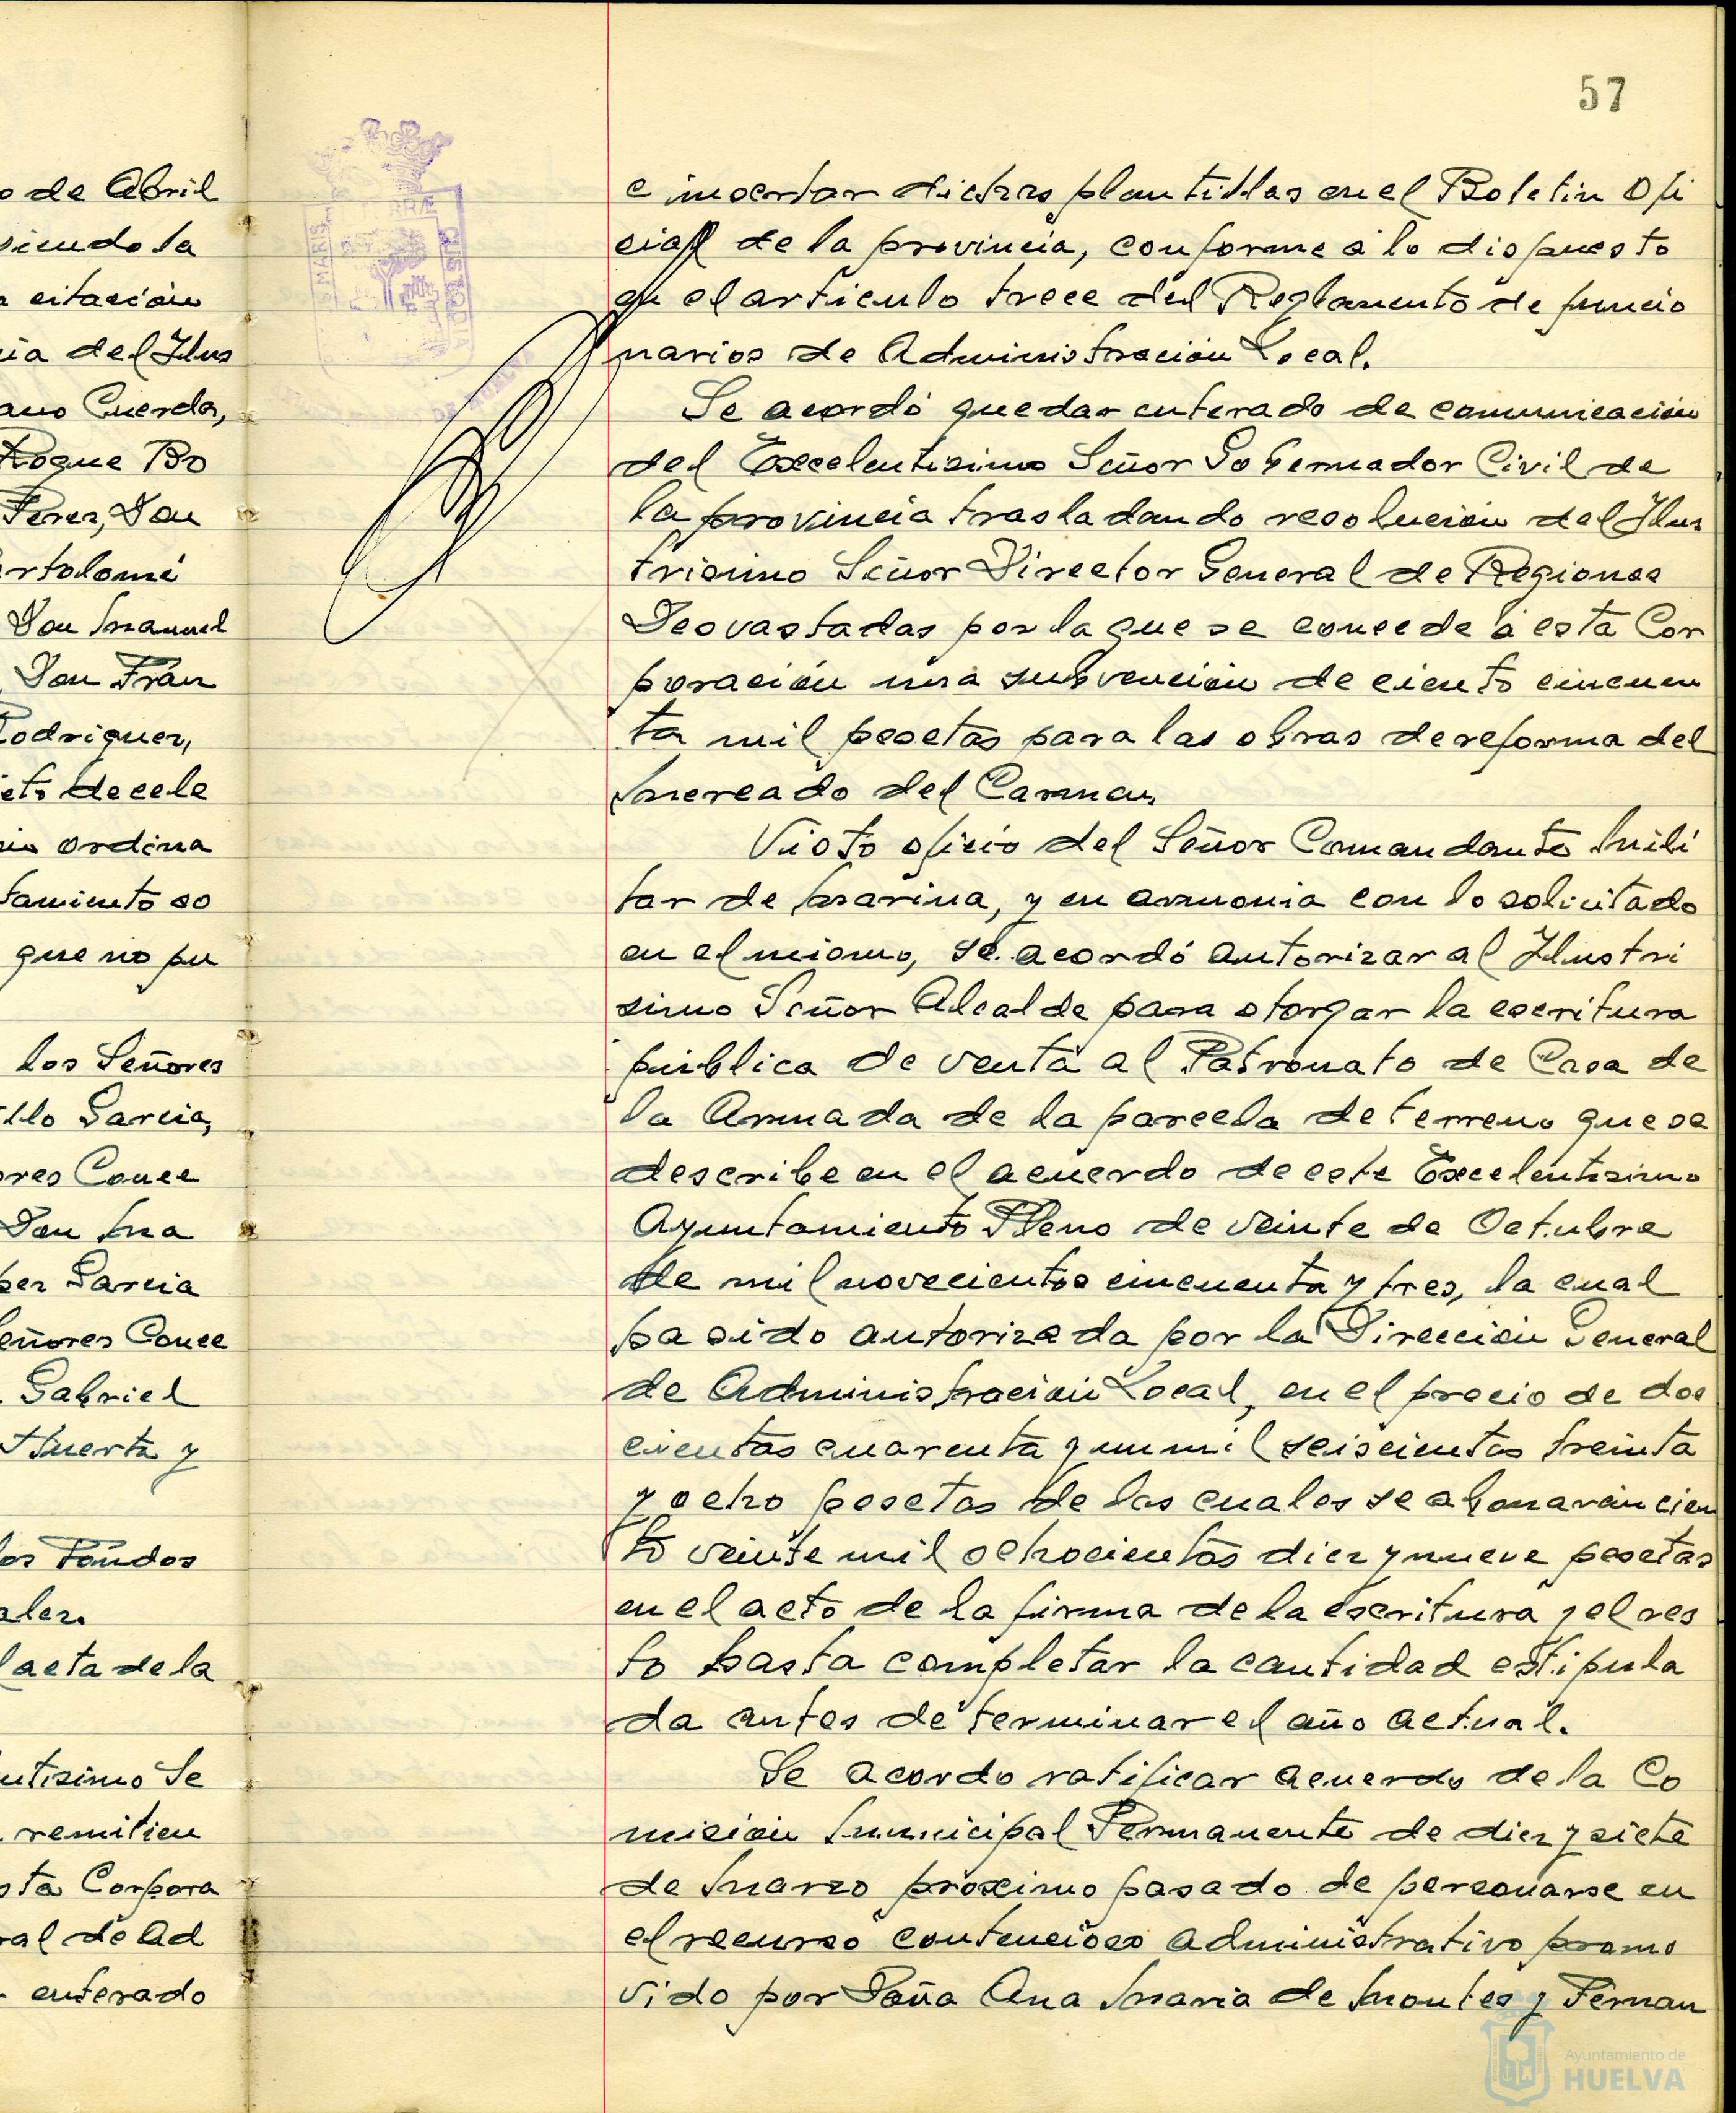 o de Abril
siendo la
a citación
cia del Ilus
ano Cuerda,
Roque Bo
Perez, Don
rtolomé
Don Manuel
Don Fran
Rodriguez,
eto de cele
ordina
tamiento so
que no pu
los Señores
illo Garcia,
ores Conce
Don Ma
Garcia
eñores Conce
Gabriel
Huerta y
los Fondos
alez.
l acta de la
ntisimo Se
remitien
sta Corpora
ral de Ad
enterado
57
e insertar dichas plantillas en el Boletin Ofi
cial de la provincia, conforme a lo dispuesto
en el articulo trece del Reglamento de funcio
narios de Administración Local.
Se acordó quedar enterado de comunicación
del Excelentisimo Señor Gobernador Civil de
la provincia trasladando resolución del Ilus
trisimo Señor Director General de Regiones
Desvastadas por la que se concede a esta Cor
poración una subvención de ciento cincuen
ta mil pesetas para las obras de reforma del
Mercado del Carmen.
Visto oficio del Señor Comandante Mili
tar de Marina, y en armonia con lo solicitado
en el mismo, se acordó autorizar al Ilustri
simo Señor Alcalde para otorgar la escritura
pública de venta al Patronato de Casa de
la Armada de la parcela de terreno que se
describe en el acuerdo de este Excelentisimo
Ayuntamiento Pleno de veinte de Octubre
de mil novecientos cincuenta y tres, la cual
ha sido autorizada por la Dirección General
de Administración Local, en el precio de dos
cientas cuarenta y un mil seiscientas treinta
y ocho pesetas de las cuales se abonarán cien
to veinte mil ochocientas diez y nueve pesetas
en el acto de la firma de la escritura y el res
to hasta completar la cantidad estipula
da antes de terminar el año actual.
Se acordo ratificar acuerdo de la Co
misión Municipal Permanente de diez y siete
de Marzo próximo pasado de personarse en
el recurso contencioso administrativo promo
vido por Doña Ana Maria de Montes y Fernan
Ayuntamiento de
HUELVA